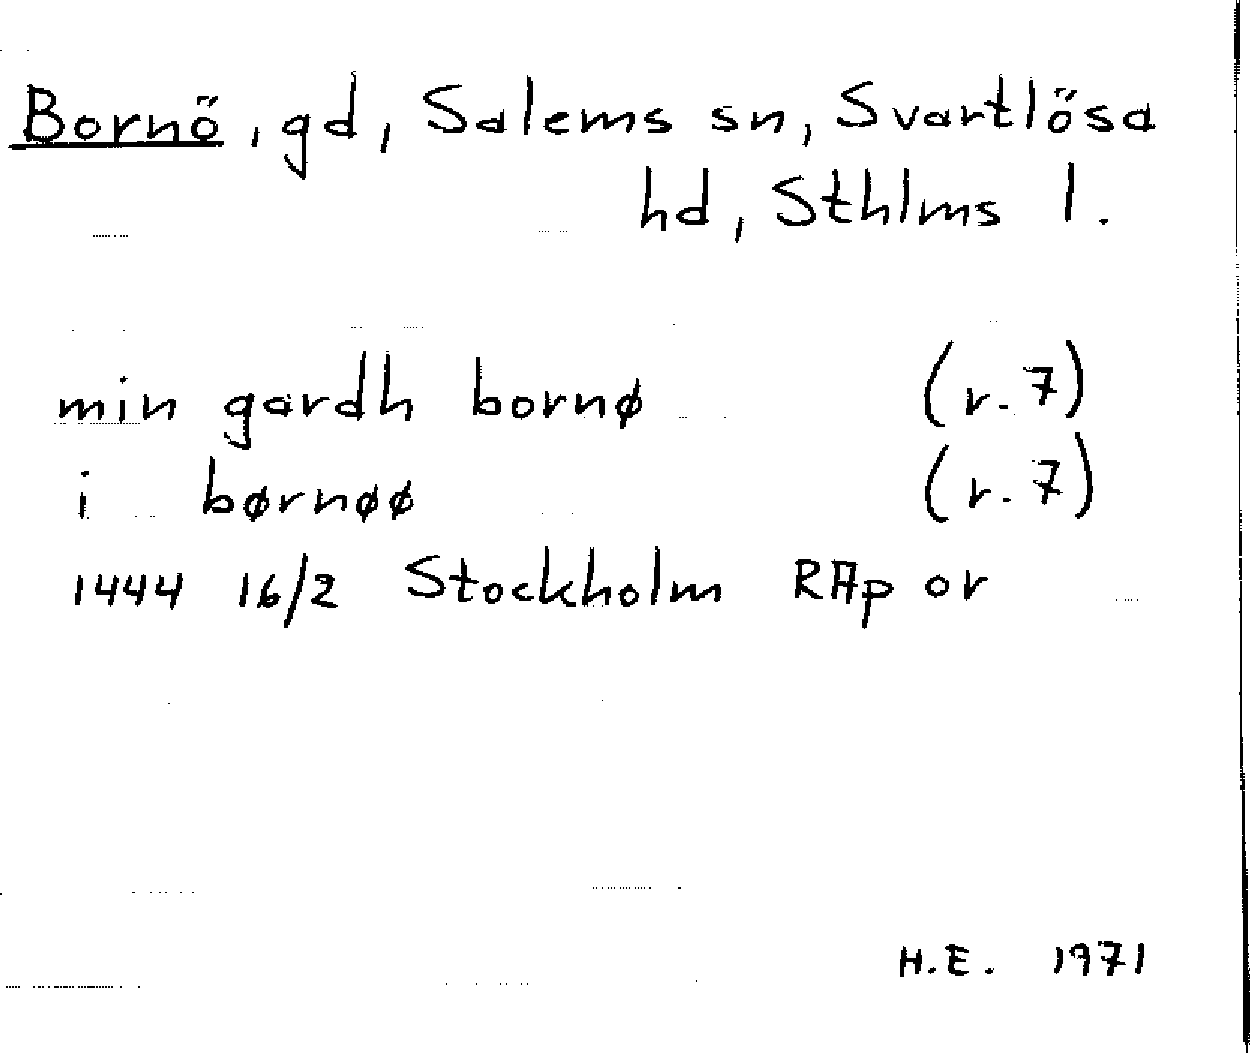 Bornö, gd, Salems sn, Svartlösa
hd, Sthlms l.
min gardh bornø (r. 7)
i børnøø (r. 7)
1444 16/2 Stockholm RAp or
H.E. 1971